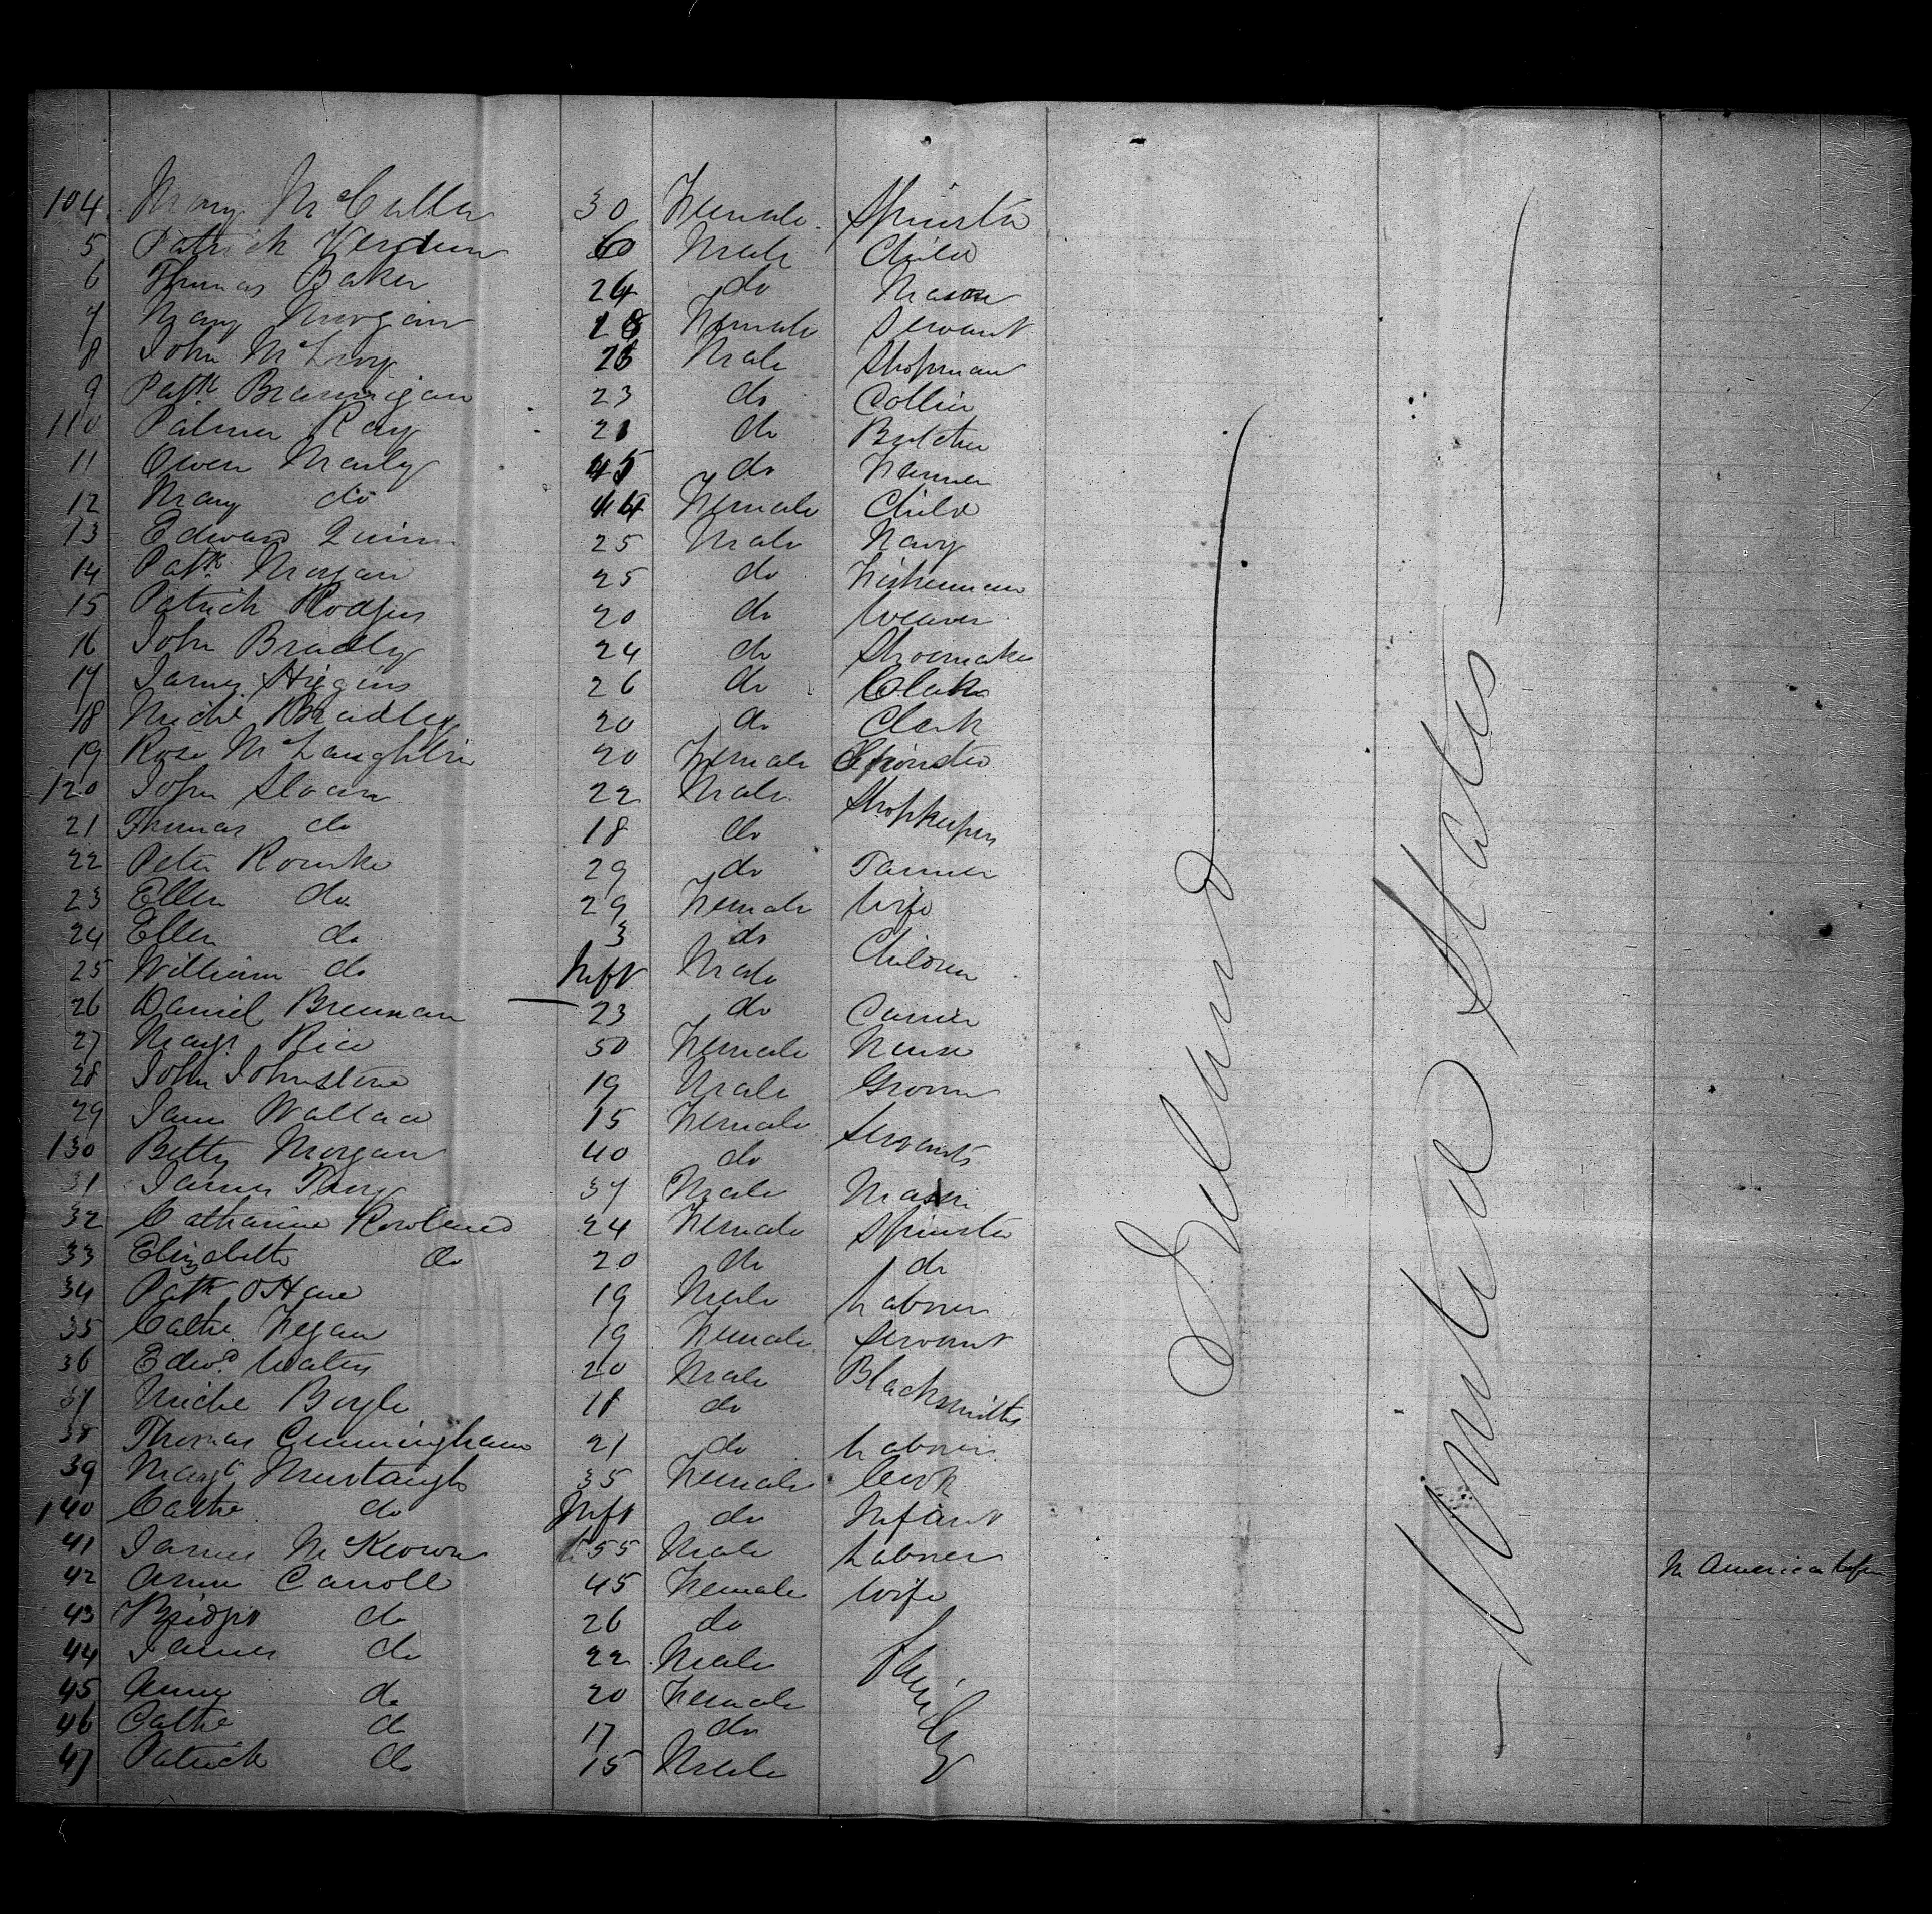 104 Mary McCulla 30 Female Spinster
5 Patrick Verdun 60 Male Child
6 Thomas Baker 24 do Mason
7 Mary Morgan 18 Female Servant
8 John McEvoy 26 Male Shopman
9 Patk Brannigan 23 do Collier
110 Palmer Ray 21 do Butcher
11 Owen Marly 45 do Farmer
12 Mary do Female Child
13 Edward Quinn 25 Male Navy
14 Patk Morgan 25 do Fisherman
15 Patrick Rodgers 20 do Weaver
16 John Bradly 24 do Shoemaker
17 James Higgins 26 do
18 Michl Bradley 20 do Clark
19 Rose McLaughlin 20 Female Spinster
120 John Sloan 22 Male Shopkeepers
21 Thomas do 18 do
22 Peter Rourke 29 do Tanner
23 Ellen do 29 Female Wife
24 Ellen do 3 do Children
25 William do Inft Male
26 Daniel Brennan 23 do Currier
27 Margt Rice 50 Female Nurse
28 John Johnstone 19 Male Groom
29 Jane Wallace 15 Female Servants
130 Betty Morgan 40 do
31 James Terry 37 Male Mason
32 Catharine Rowland 24 Female Spinster
33 Elizabeth do 20 do do
34 Patk OHare 19 Male Labourer
35 Cathe Fegan 19 Female Servant
36 Edwd Waters 20 Male Blacksmiths
37 Michl Boyle 18 do
38 Thomas Cunningham 21 do Labourer
39 Margt Murtaugh 35 Female Cook
140 Cathe do Inft do Infant
41 James McKeown 55 Male Labourer
42 Anne Carroll 45 Female Wife In America before
43 Bridget do 26 do Family
44 James do 22 Male
45 Anne do 20 Female
46 Cathe do 17 do
47 Patrick do 15 Male
Ireland
United States